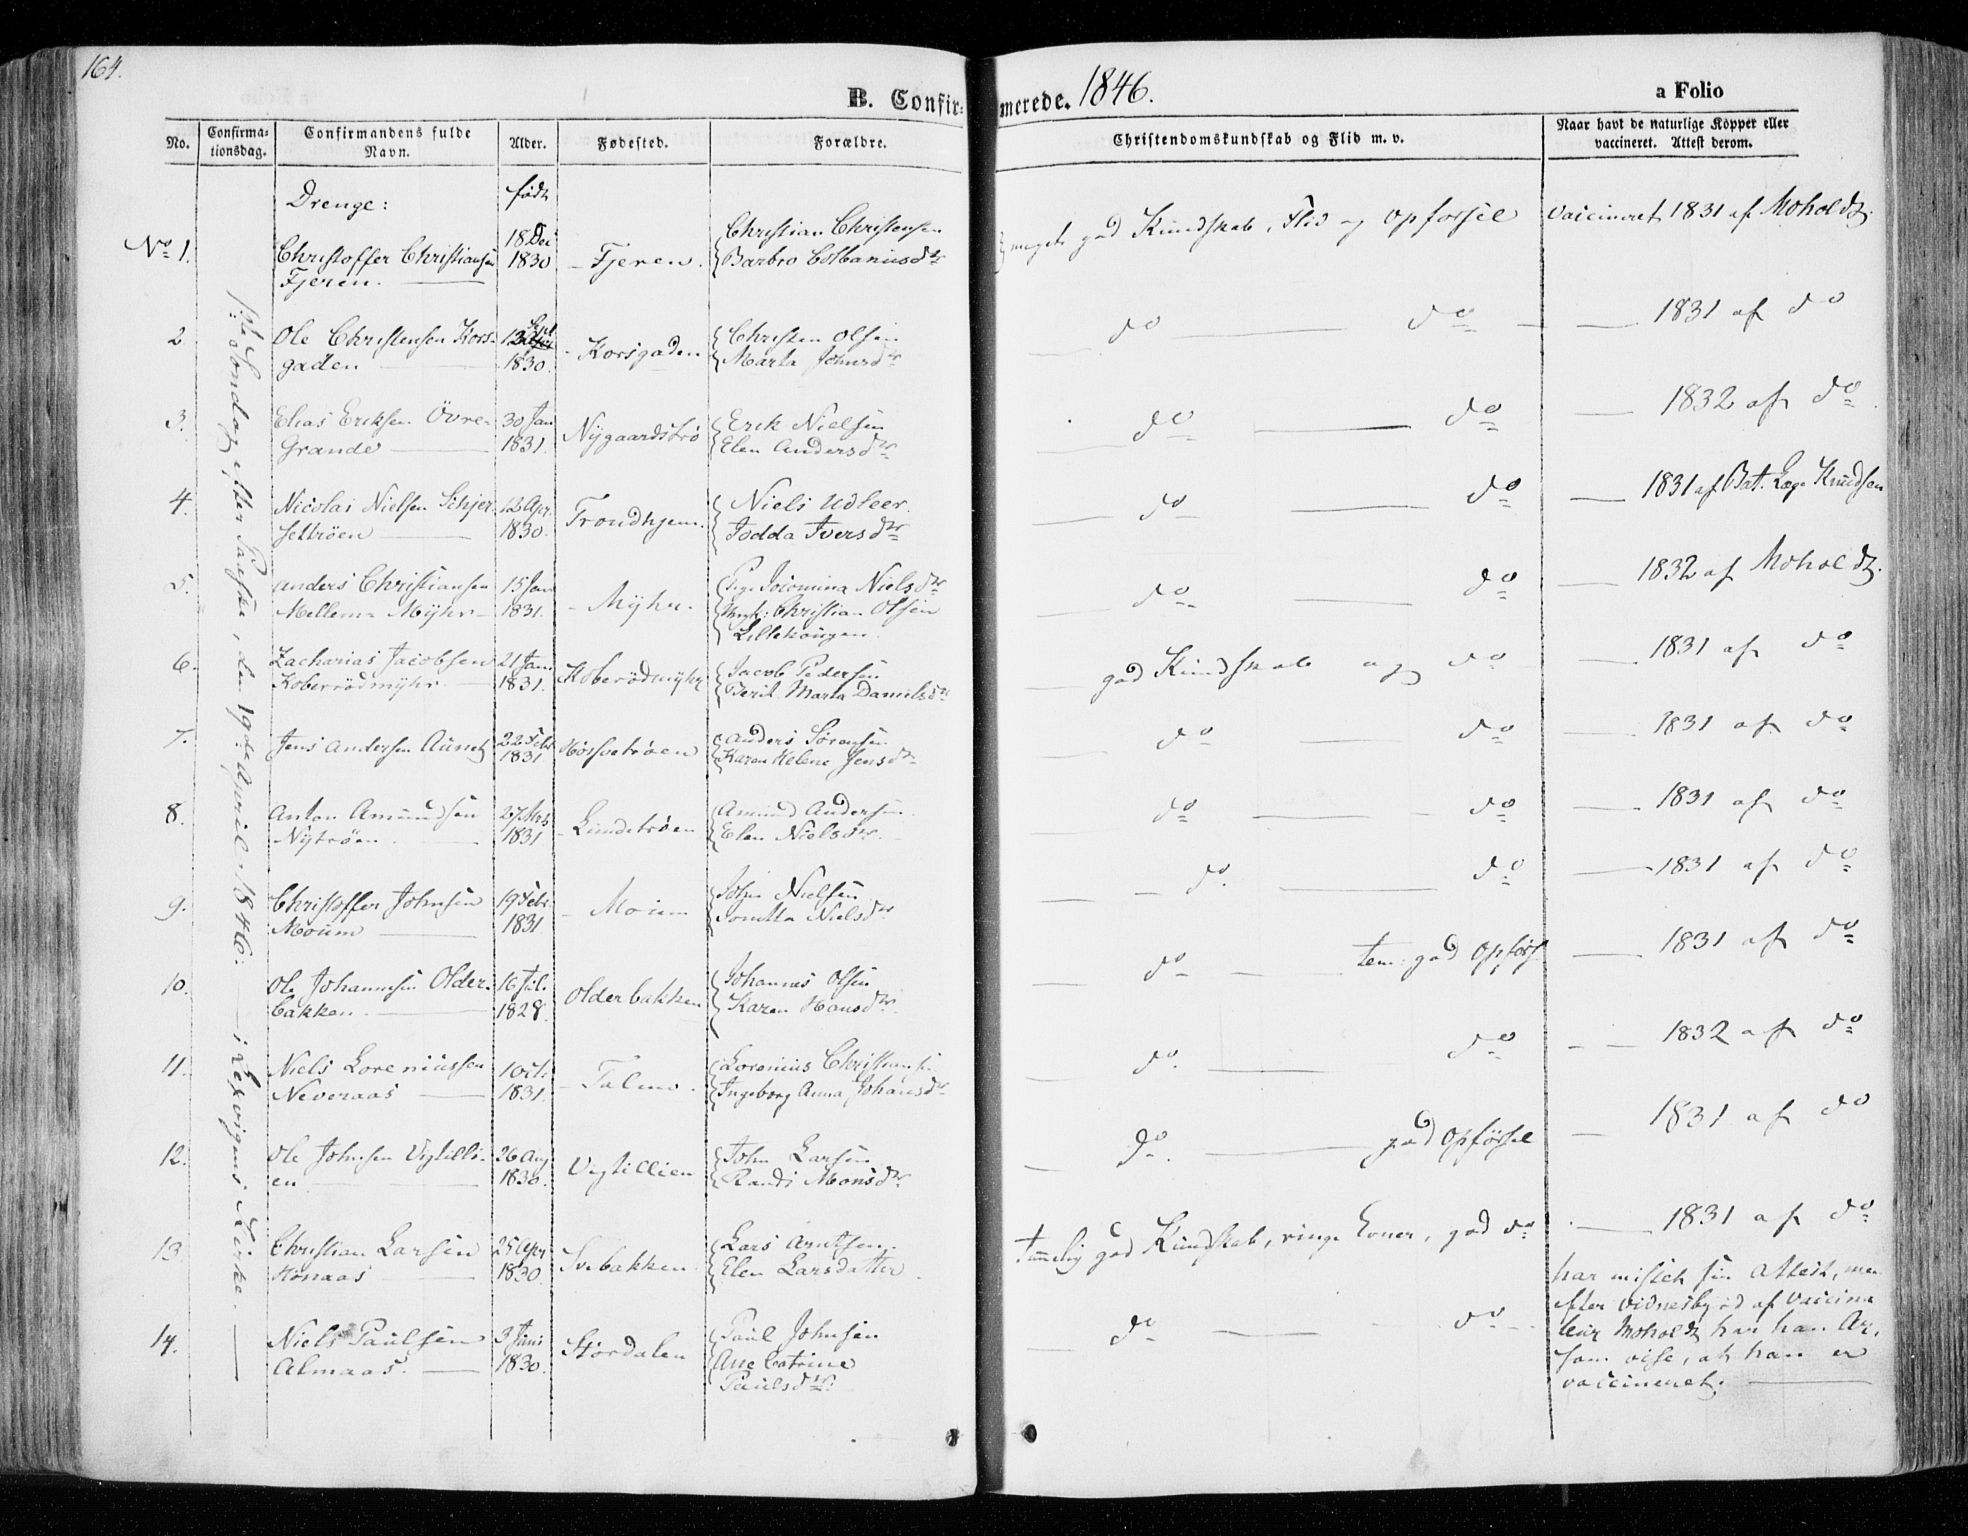 164.
B. Confirmerede. 1846.
a Folio
No.
Confirmationsdag.
Confirmandens fulde Navn.
Alder.
Fødested.
Forældre.
Christendomskundskab og Flid m. v.
Naar havt de naturlige Kopper eller
vaccineret. Attest derom.
1ste Søndag efter Paaske, den 19de April 1846. — i Lexvigens Kirke. —
Drenge:
født
No 1.
Christoffer Christiansen
Fjeren. —
18 Dec
1830
Fjeren.
Christian Christensen
Barbro Colbanusdtr
meget god Kundskab, Flid og Opførsel
Vaccineret 1831 af Moholdt.
2
Ole Christensen Kors-
gaden —
Sept
1830.
Korsgaden
Christen Olsen
Marta Johnsdtr
do — do
— 1831 af do
3.
Elias Eriksen Övre-
Grande —
30 Jan
1831.
Nÿgaardstrø
Erik Nielsen
Elen Andersdtr
do — do
— 1832 af do
4.
Nicolai Nielsen Schjer-
settröen —
12 Apr.
1830.
Trondhjem.
Niels Udleer.
Jodda Iversdtr
do do
— 1831 af Bat. Læge Knudsen
5.
Anders Christiansen
Mellem Mÿhr —
15 Jan
1831.
Mÿhr.
Pige Nielsdtr
Christian Olsen
do — do
— 1832 af Moholdt.
6.
Zacharias Jacobsen
Koberrödmÿhr. —
21 Jan
1831.
Koberödmÿhr
Jacob Pedersen
Berit Marta Danielsdtr
— god Kundskab og do
— 1831 af do
7.
Jens Andersen Aunet
22 Febr
1831
Anders Sörensen
Karen Helene Jensdtr
do — do
— 1831 af do
8.
Anton Amundsen
Nÿtröen. —
27 Mrs
1831
Lundetröen
Amund Andersen.
Elen Nielsdtr.
do — do
— 1831 af do
9.
Christoffer Johnsen
Moum —
19 Febr.
1831
Moum
John Nielsen
Nielsdtr
— do. — do
— 1831 af do
10.
Ole Johannesen Older-
bakken. —
16 Jul.
1828.
Olderbakken
Johannes Olsen
Karen Hansdtr.
do — tem: god Opförs
— 1831 af do
11.
Niels Loreniussen
Neveraas —
1 Oct.
1831.
Lorenius Christiansen
Ingeborg Anna Johansdtr
do. — do
— 1832 af do
12.
Ole Johnsen Vigtilli-
en —
26 Aug
1830.
Vigtillien
John Larsen
Randi Monsdtr.
do. — god Opførsel
— 1831 af do
13.
Christian Larsen
Hönaas —
25 Apr
1830.
Svebakken
Lars Arntsen.
Elen Larsdatter.
Temelig god Kundskab, ringe Evner, god do
— 1831 af do
14.
Niels Paulsen
Almaas. —
3 Juni
1830.
Stördalen
Paul Johnsen
Ane Catrine
Paulsdtr.
do — do
har mistet sin Attest, men
efter vidnesbyrd af Vaccina
teur Moholdt har han Ar,
som vise, at han er
vaccineret. —